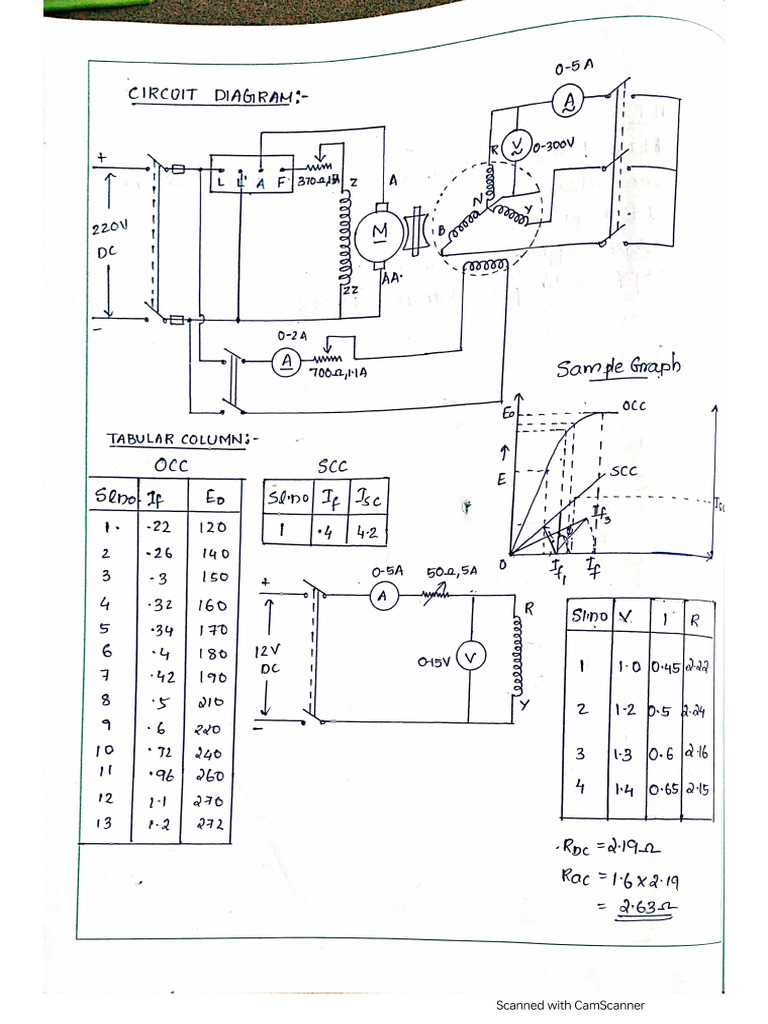 CIRCUIT DIAGRAM:-
0-5A
A
V
0-300V
R
N
Y
B
+
220V
DC
-
L L' A F
370Ω,
Z
ZZ
A
M
AA
0-2A
A
700Ω,1.1A
Sample Graph
E0
OCC
E
SCC
Isc
If3
O
If1
If
TABULAR COLUMN:-
OCC
Sl.no If E0
1. .22 120
2 .26 140
3 .3 150
4 .32 160
5 .34 170
6 .4 180
7 .42 190
8 .5 210
9 .6 220
10 .72 240
11 .96 260
12 1.1 270
13 1.2 272
SCC
Sl.no If Isc
1 .4 4.2
+
12V
DC
-
0-5A
A
50Ω,5A
0-15V
V
R
Y
Sl.no V I R
1 1.0 0.45 2.22
2 1.2 0.5 2.24
3 1.3 0.6 2.16
4 1.4 0.65 2.15
RDC = 2.19Ω
RAC = 1.6 x 2.19
= 2.63Ω
Scanned with CamScanner